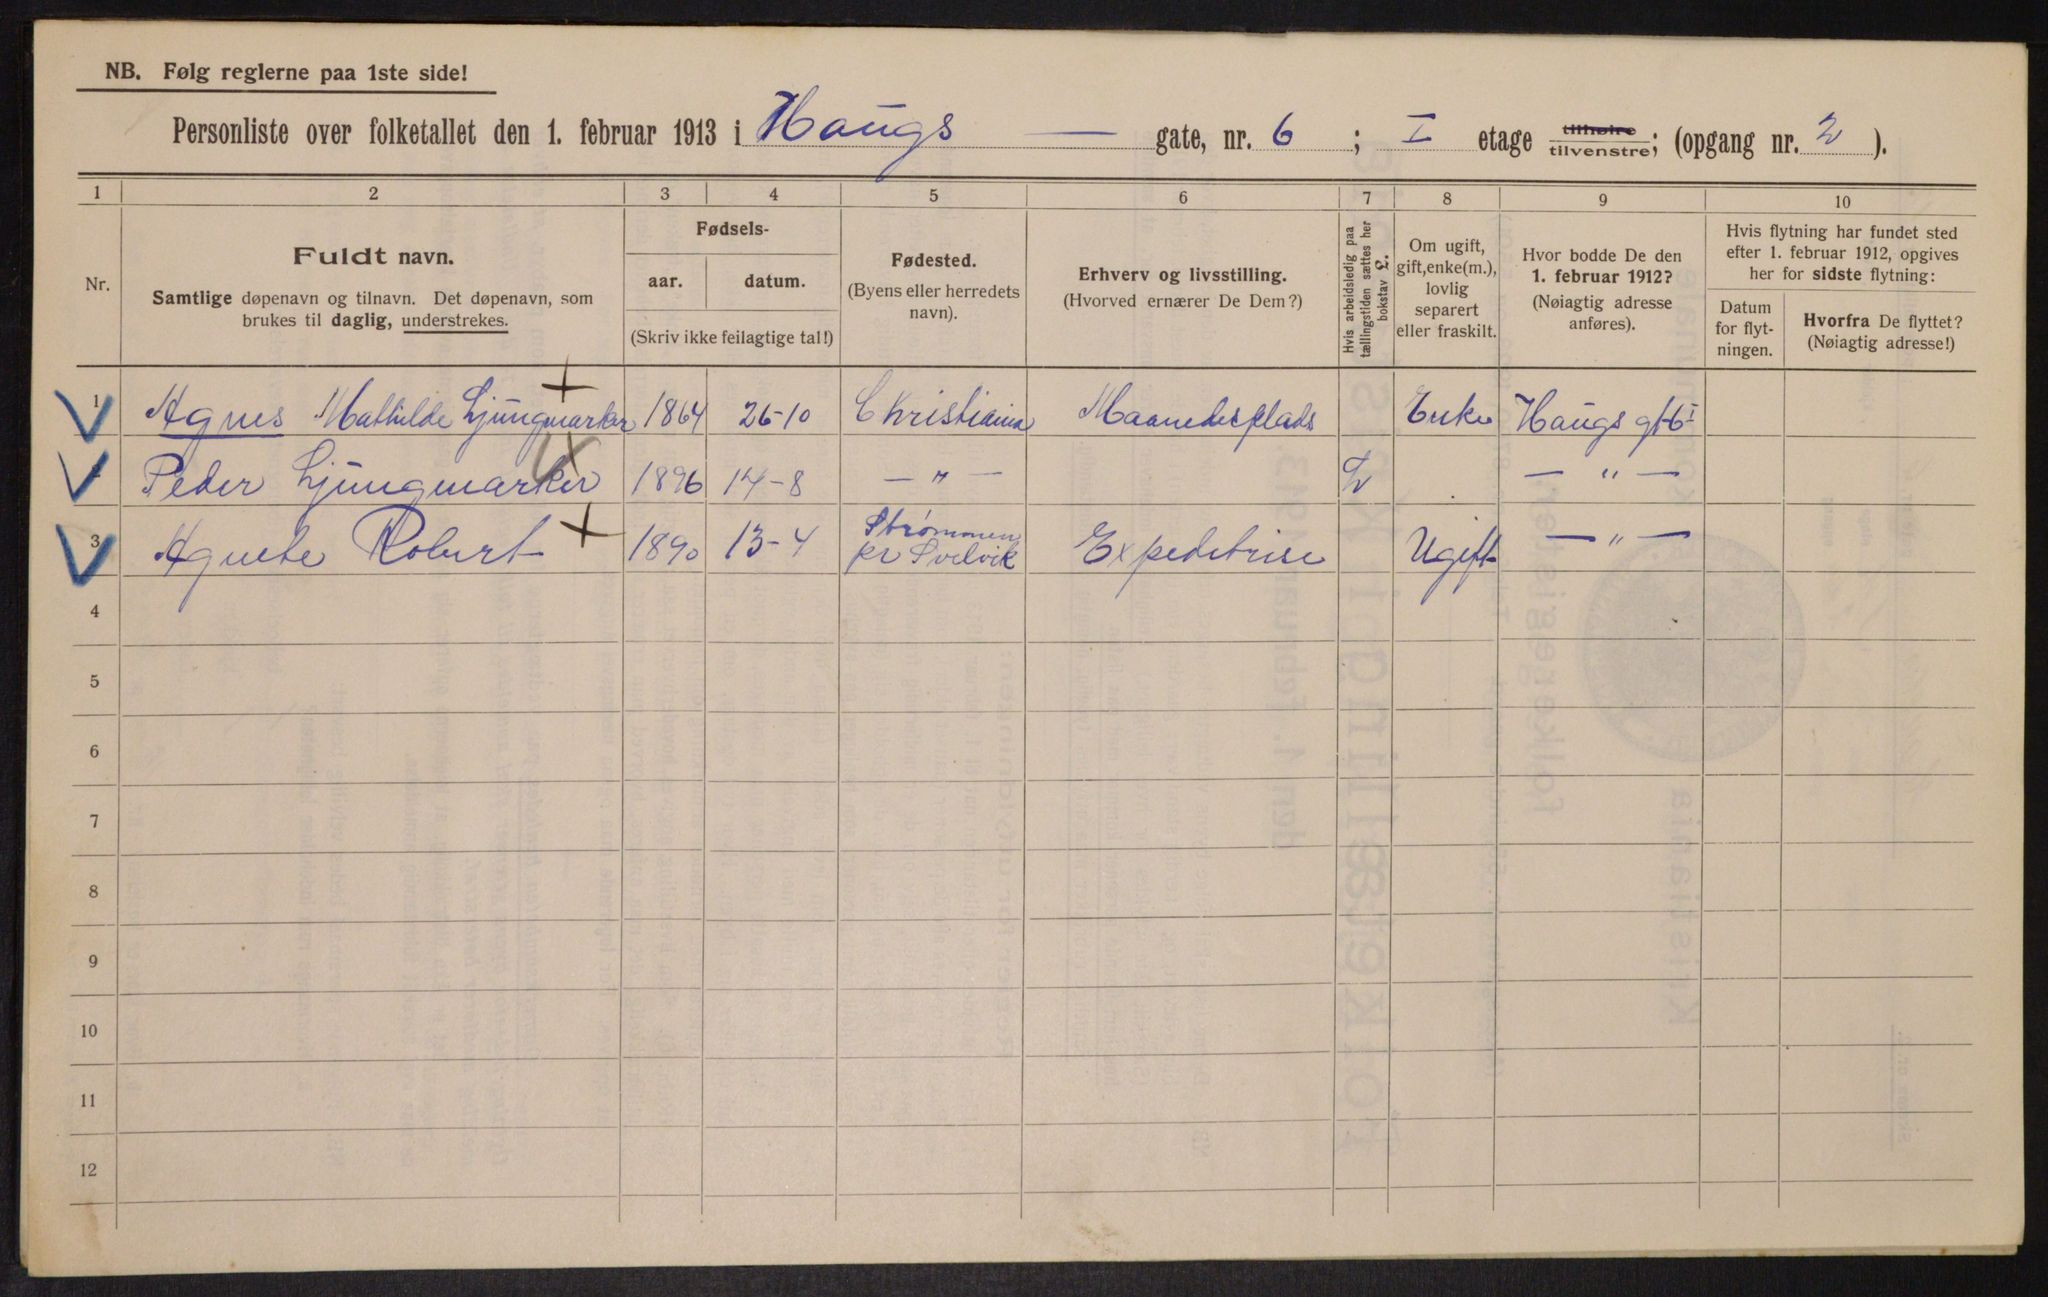 NB. Følg reglerne paa 1ste side!
Personliste over folketallet den 1. februar 1913 i Haugs — gate, nr. 6 ; I etage tilhøire tilvenstre; (opgang nr. 2 ).
1 2 3 4 5 6 7 8 9 10
Nr.
Fuldt navn.
Samtlige døpenavn og tilnavn. Det døpenavn, som
brukes til daglig, understrekes.
Fødsels-
aar. datum.
(Skriv ikke feilagtige tal!)
Fødested.
(Byens eller herredets
navn).
Erhverv og livsstilling.
(Hvorved ernærer De Dem?)
Hvis arbeidsledig paa
tællingstiden sættes her
bokstav £.
Om ugift,
gift, enke(m.),
lovlig
separert
eller fraskilt.
Hvor bodde De den
1. februar 1912?
(Nøiagtig adresse
anføres).
Hvis flytning har fundet sted
efter 1. februar 1912, opgives
her for sidste flytning:
Datum
for flyt-
ningen.
Hvorfra De flyttet?
(Nøiagtig adresse!)
1 Agnes Mathilde Ljungmarker 1864 26-10 Christiania Maanedesplads Enke Haugs gt 6 I
Peder Ljungmarker 1896 14-8 — " — L — " —
3 Agnete Robert 1890 13-4 Strømmen pr Svelvik Expeditrise Ugift — " —
4
5
6
7
8
9
10
11
12